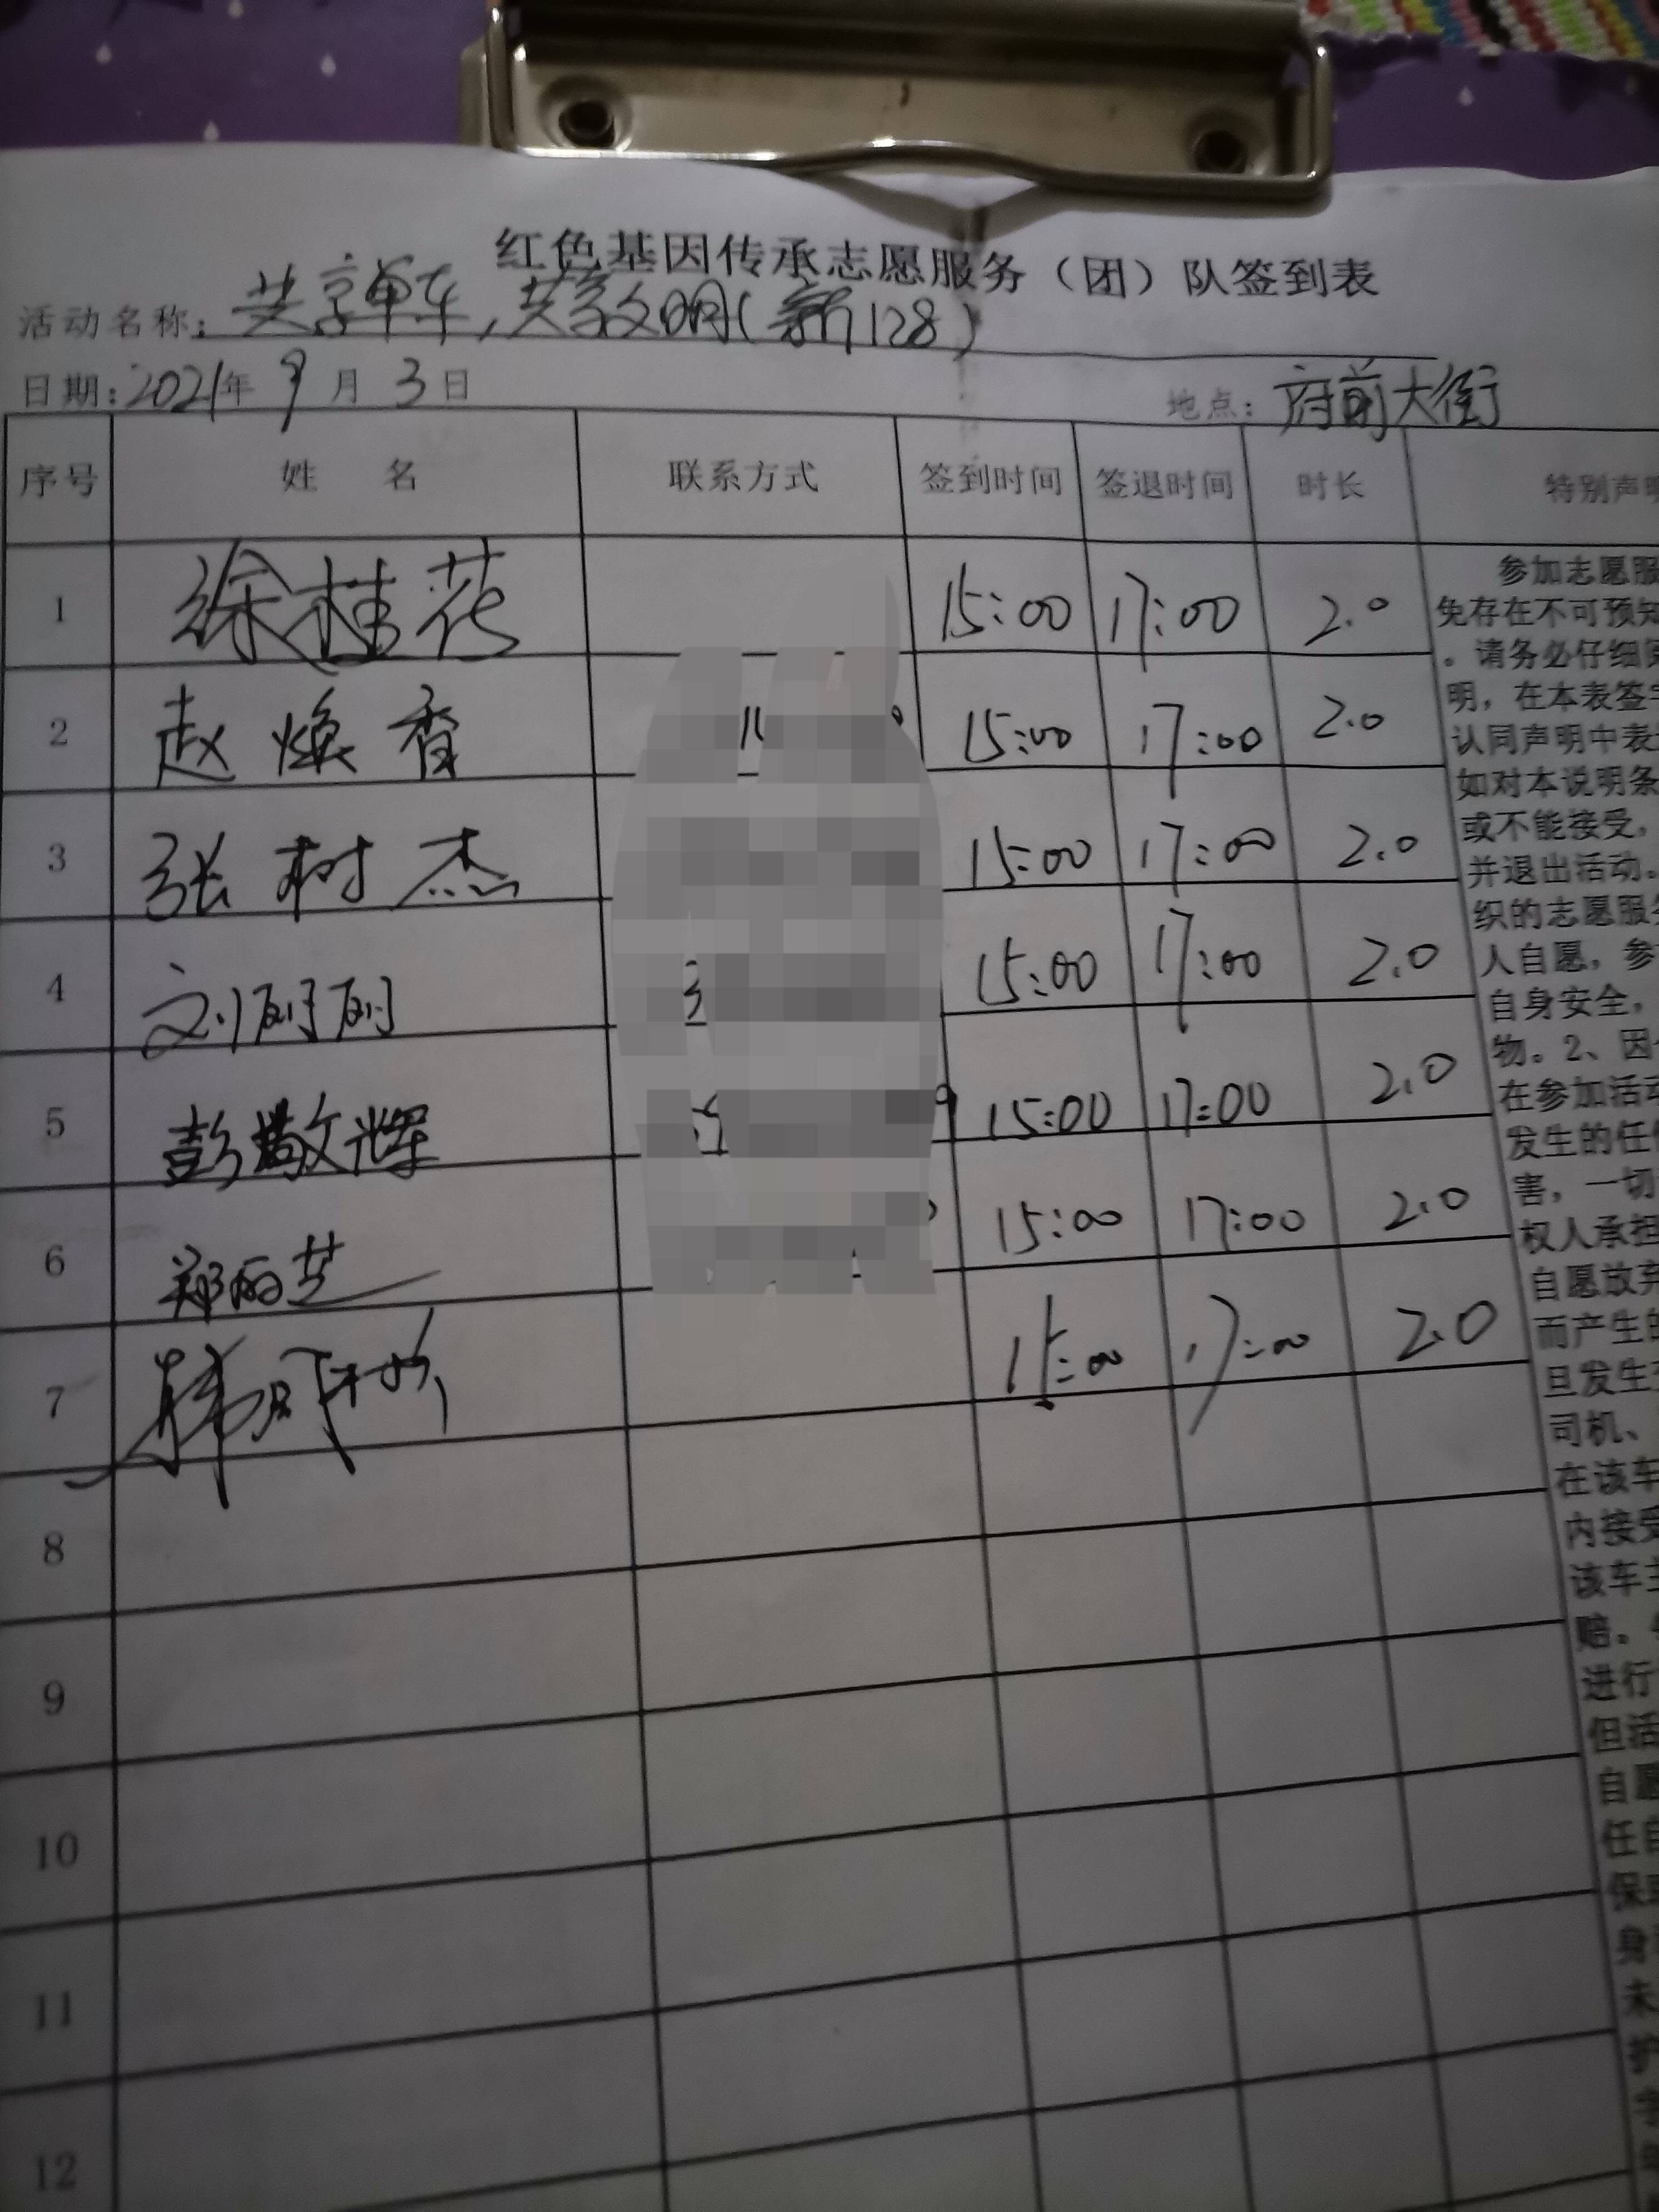 红色基因传承志愿服务（团）队签到表
活动名称：共享单车，共享文明（新128）
日期：2021年 9月 3日 地点：府前大街
序号 姓 名 联系方式 签到时间 签退时间 时长 特别声明
1 徐桂花 15:00 17:00 2.0
2 赵焕香 15:00 17:00 2.0
3 张树杰 15:00 17:00 2.0
4 刘丽丽 15:00 17:00 2.0
5 彭敬辉 15:00 17:00 2.0
6 郑丽芝 15:00 17:00 2.0
7 韩 15:00 17:00 2.0
8
9
10
11
12
参加志愿服
免存在不可预知
。请务必仔细阅
明，在本表签字
认同声明中表
如对本说明条
或不能接受，
并退出活动。
织的志愿服务
人自愿，参
自身安全，
物。2、因
在参加活动
发生的任何
害，一切
权人承担
自愿放弃
而产生的
旦发生
司机、
在该车
内接受
该车主
赔。
进行
但活
自愿
任自
保
身
未
护
字